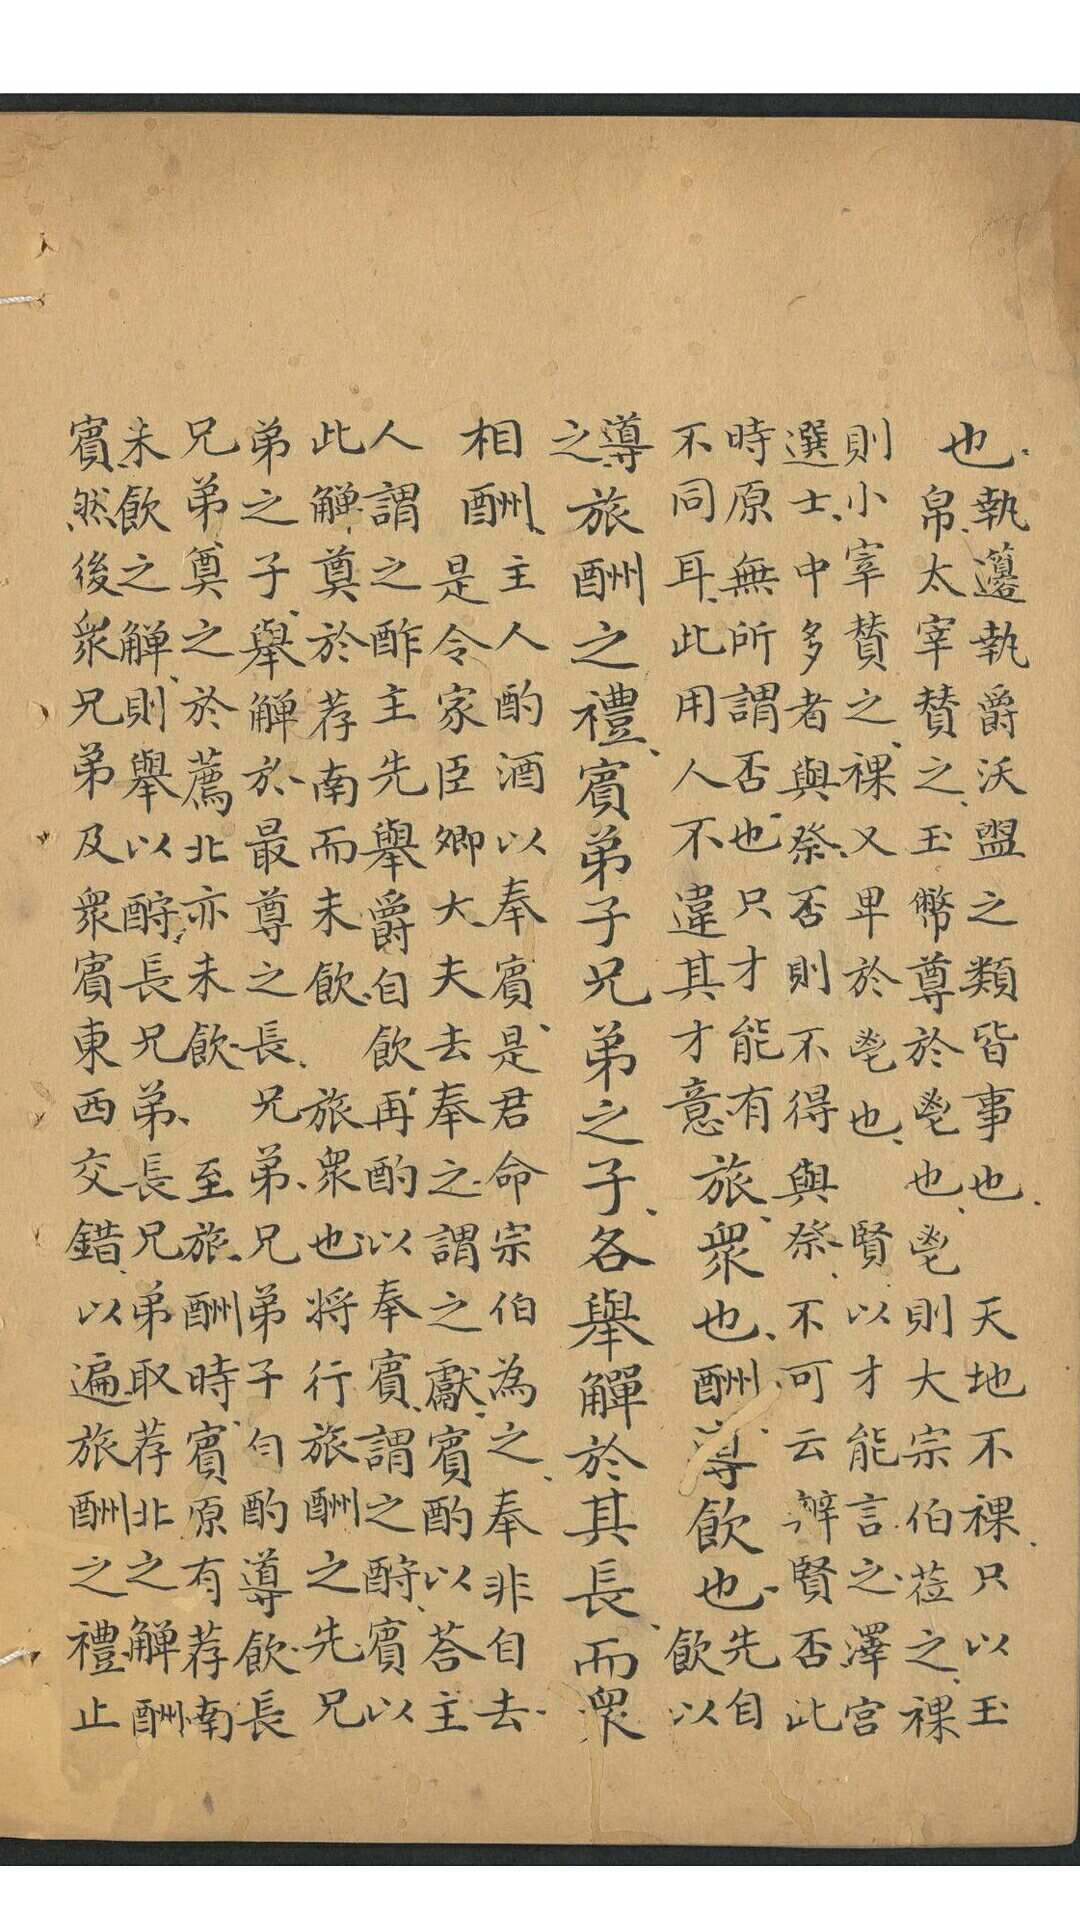 也、執籩執爵沃盥之類皆事也、天地不祼、只以玉
帛、太宰贊之、玉幣尊於鬯也、鬯則大宗伯莅之、祼
則小宰贊之、祼又卑於鬯也、賢以才能言之、澤宮
選士、中多者與祭、否則不得與祭、不可云辨賢否、此
時原無所謂否也、只才能有
不同耳、此用人不違其才意、
旅、眾也、酬、導飲也、先自
飲以
導
之、旅酬之禮、賓弟子兄弟之子、各舉觶於其長、而眾
相酬、主人酌酒以奉賓、是君命宗伯為之、奉非自去、
是令家臣卿大夫去奉之、謂之獻、賓酌以荅主
人謂之酢、主先舉爵自飲、再酌以奉賓、謂之酧、賓以
此觶、奠於荐南而未飲、旅眾也、將行旅酬之先、兄
弟之子、舉觶於最尊之長、兄弟、兄弟子勻酌導飲、長
兄弟奠之於薦北、亦未飲、至旅酬時、賓原有荐南
未飲之觶、則舉以酧長兄弟、長兄弟取荐北之觶酬
賓、然後眾兄弟及眾賓東西交錯、以遍旅酬之禮、止